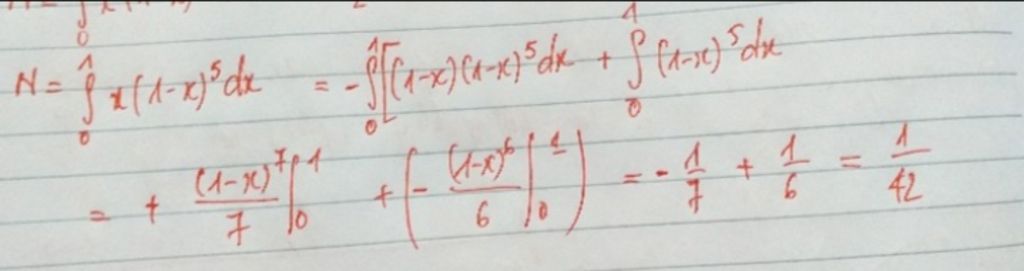 0
N = ∫₀¹ x(1-x)⁵dx = -∫₀¹[(1-x)(1-x)⁵dx + ∫₀¹(1-x)⁵dx
= + (1-x)⁷/7 |₀¹ + (- (1-x)⁶/6 |₀¹) = - 1/7 + 1/6 = 1/42